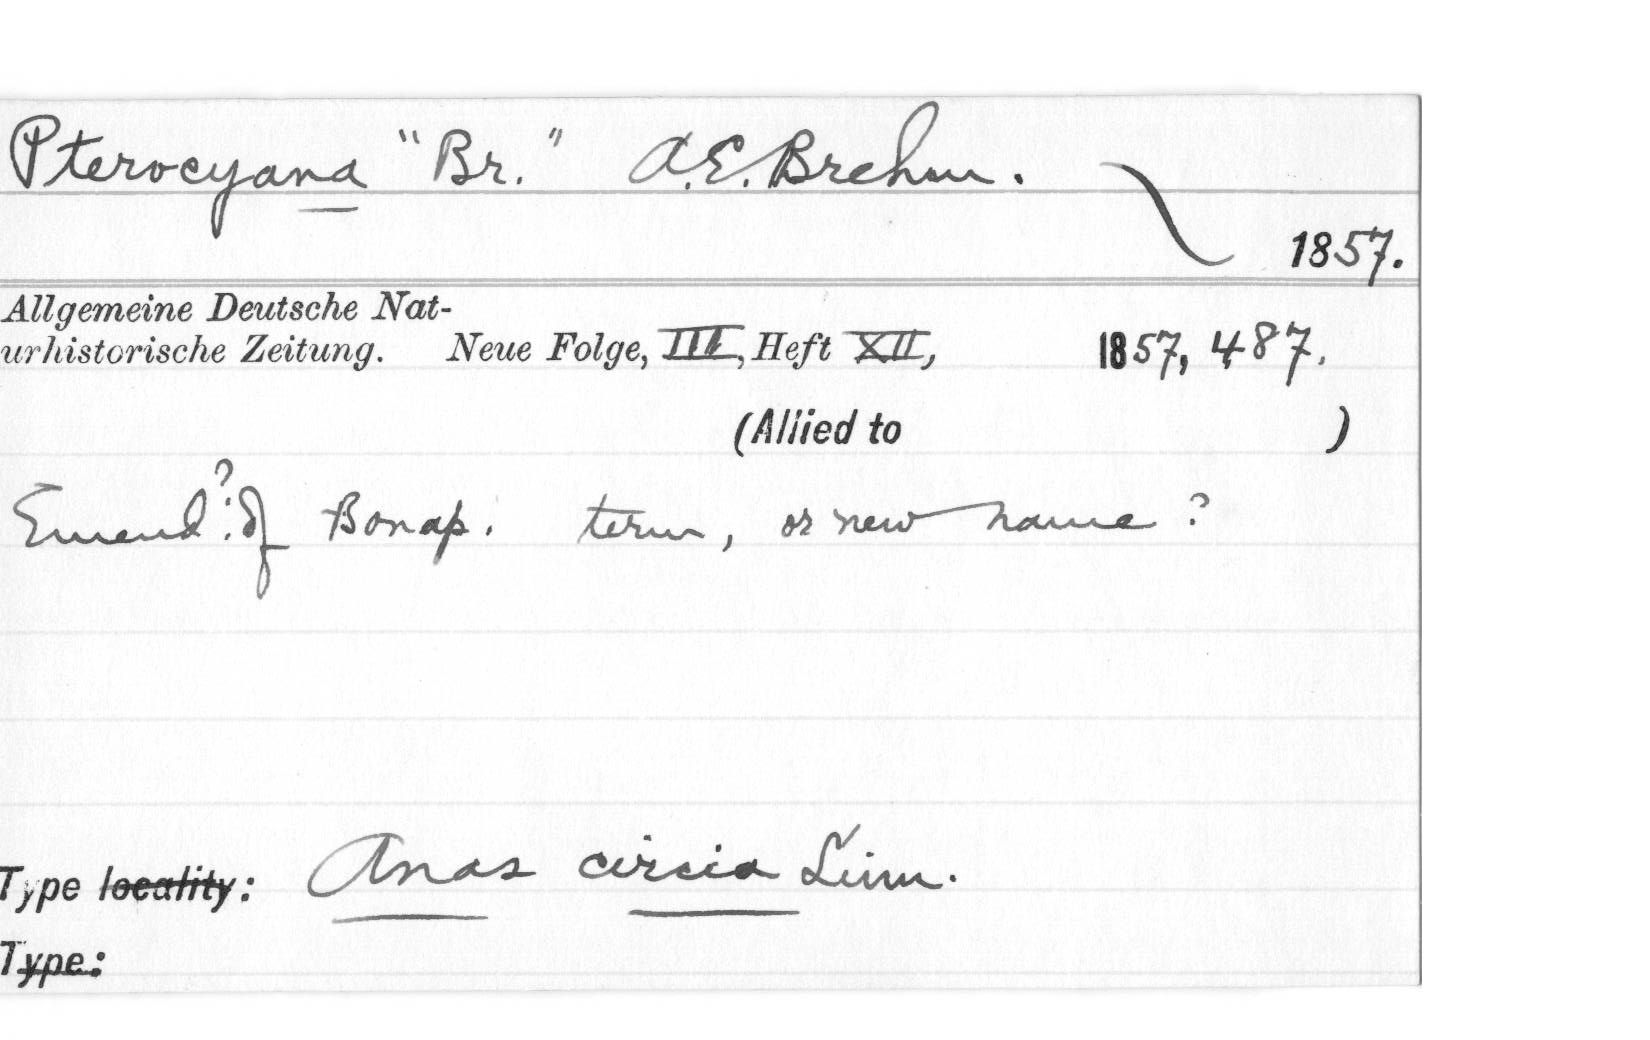 Pterocyana "Br." A.E. Brehm.
1857.
Allgemeine Deutsche Nat-
urhistorische Zeitung. Neue Folge, III, Heft XII, 1857, 487.
(Allied to )
Emend?. of Bonap. term, or new name?
Type locality: Anas circia Linn.
Type: